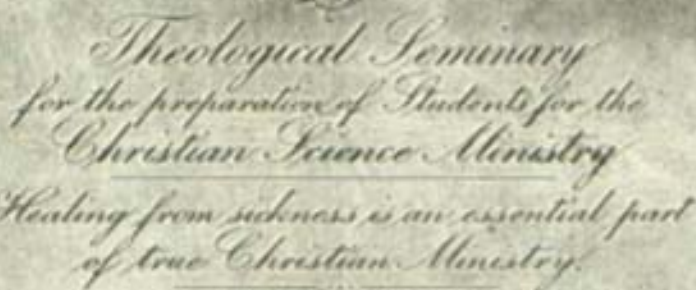 Theological Seminary
for the preparation of Students for the
Christian Science Ministry
Healing from sickness is an essential part
of true Christian Ministry.